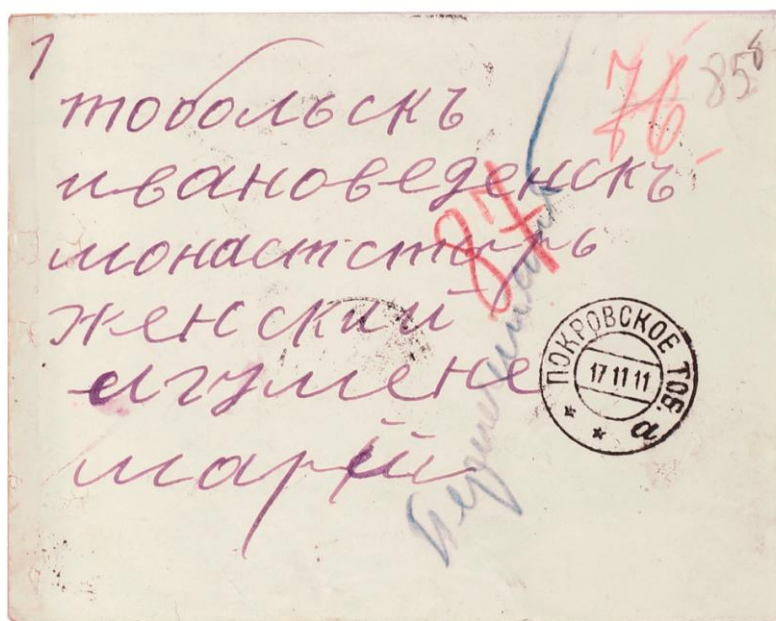 1
76
85
тобольскъ
ивановеденскъ
87
монастстырь
женский
игумене
марїи
ПОКРОВСКОЕ ТОБ.
17 11 11
а